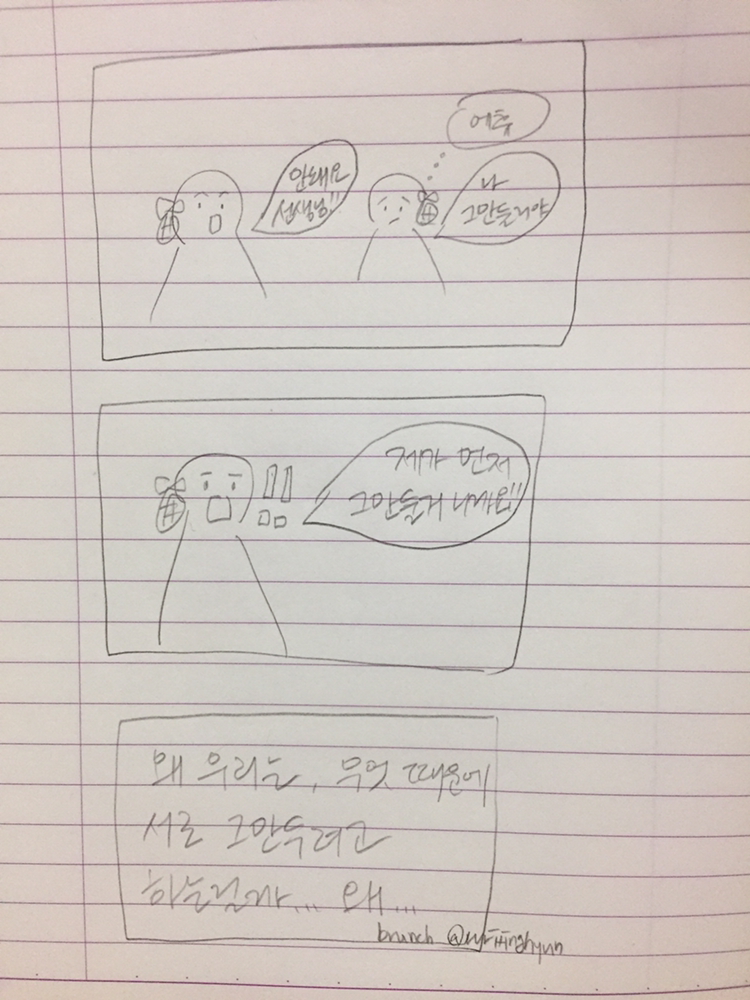 어휴
나
그만둘거야
안돼요
선생님!!
!!
제가 먼저
그만둘거니까요!!
왜 우리는, 무엇 때문에
서로 그만두려고
하는걸까... 왜...
brunch